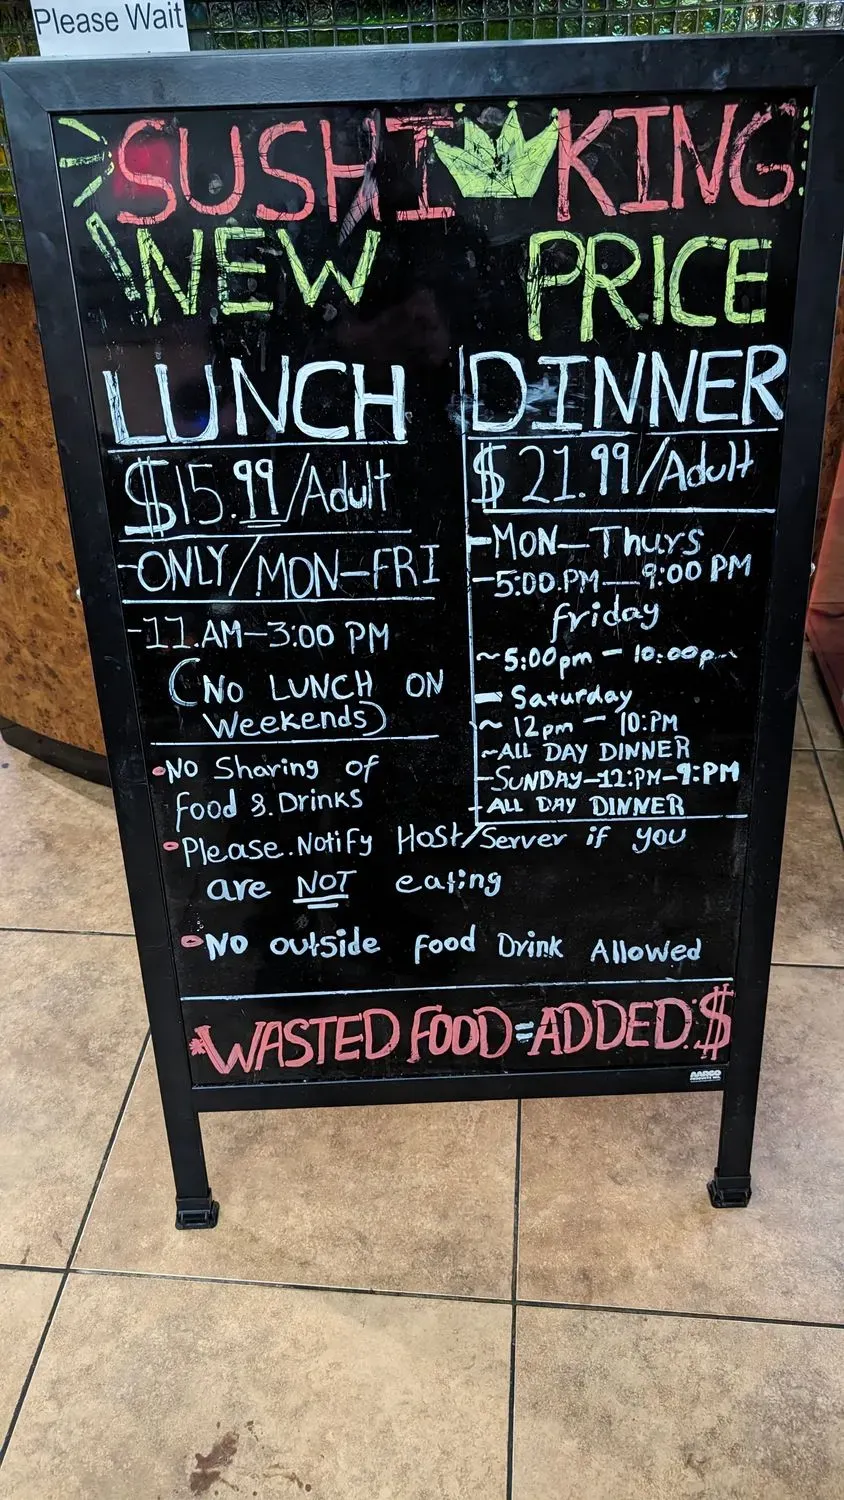 Please Wait
SUSHI KING
NEW PRICE
LUNCH
$15.99/Adult
-ONLY/MON-FRI
-11.AM-3:00 PM
(NO LUNCH ON
Weekends)
DINNER
$21.99/Adult
-MON-Thurs
-5:00.PM-9:00 PM
friday
~5:00pm - 10:00pm
- Saturday
~ 12pm - 10:PM
~ALL DAY DINNER
-SUNDAY-12:PM-9:PM
-ALL DAY DINNER
NO Sharing of
food & Drinks
Please.Notify Host/Server if you
are NOT eating
NO outside food Drink Allowed
*WASTED FOOD=ADDED:$
AARCO
PRODUCTS INC.